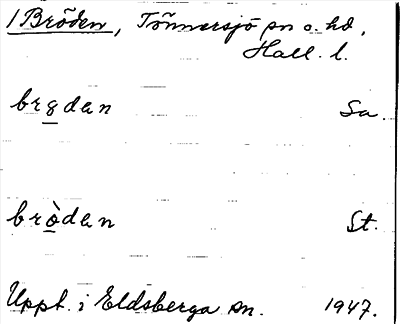 1 Bröden, Tönnersjö sn o. hd,
Hall. l.
brɞdan Sa.
bròdan St.
Uppt. i Eldsberga sn. 1947.